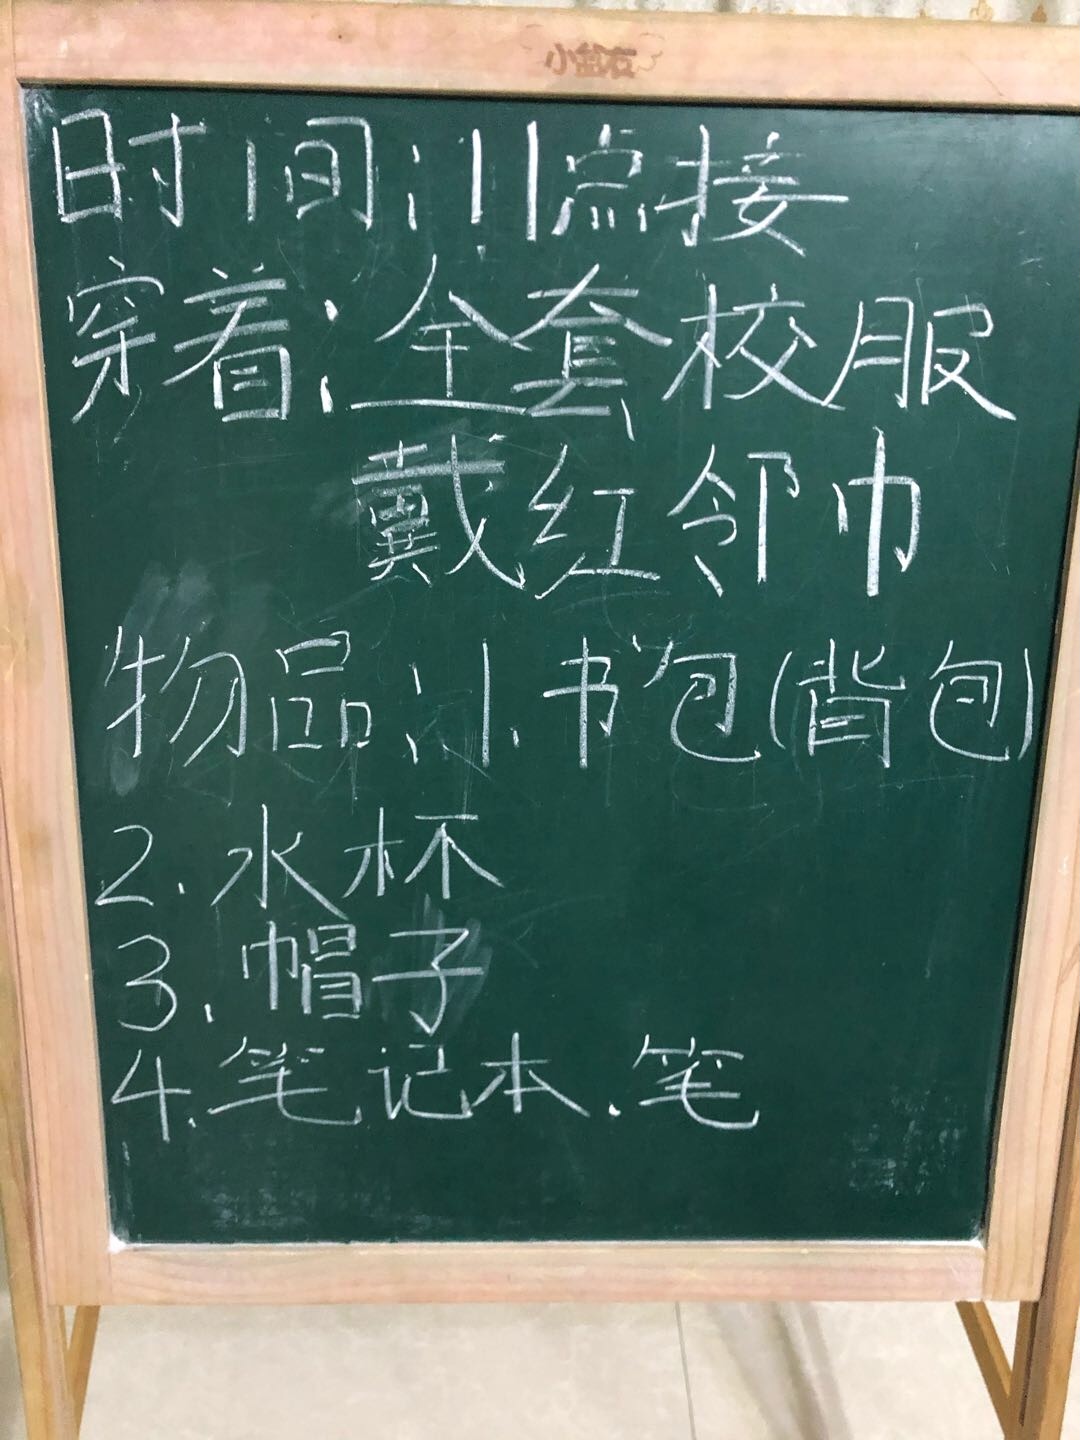 小盆友
时间:11点接
穿着:全套校服
戴红邻巾
物品:1.书包(背包)
2.水杯
3.帽子
4.笔记本.笔